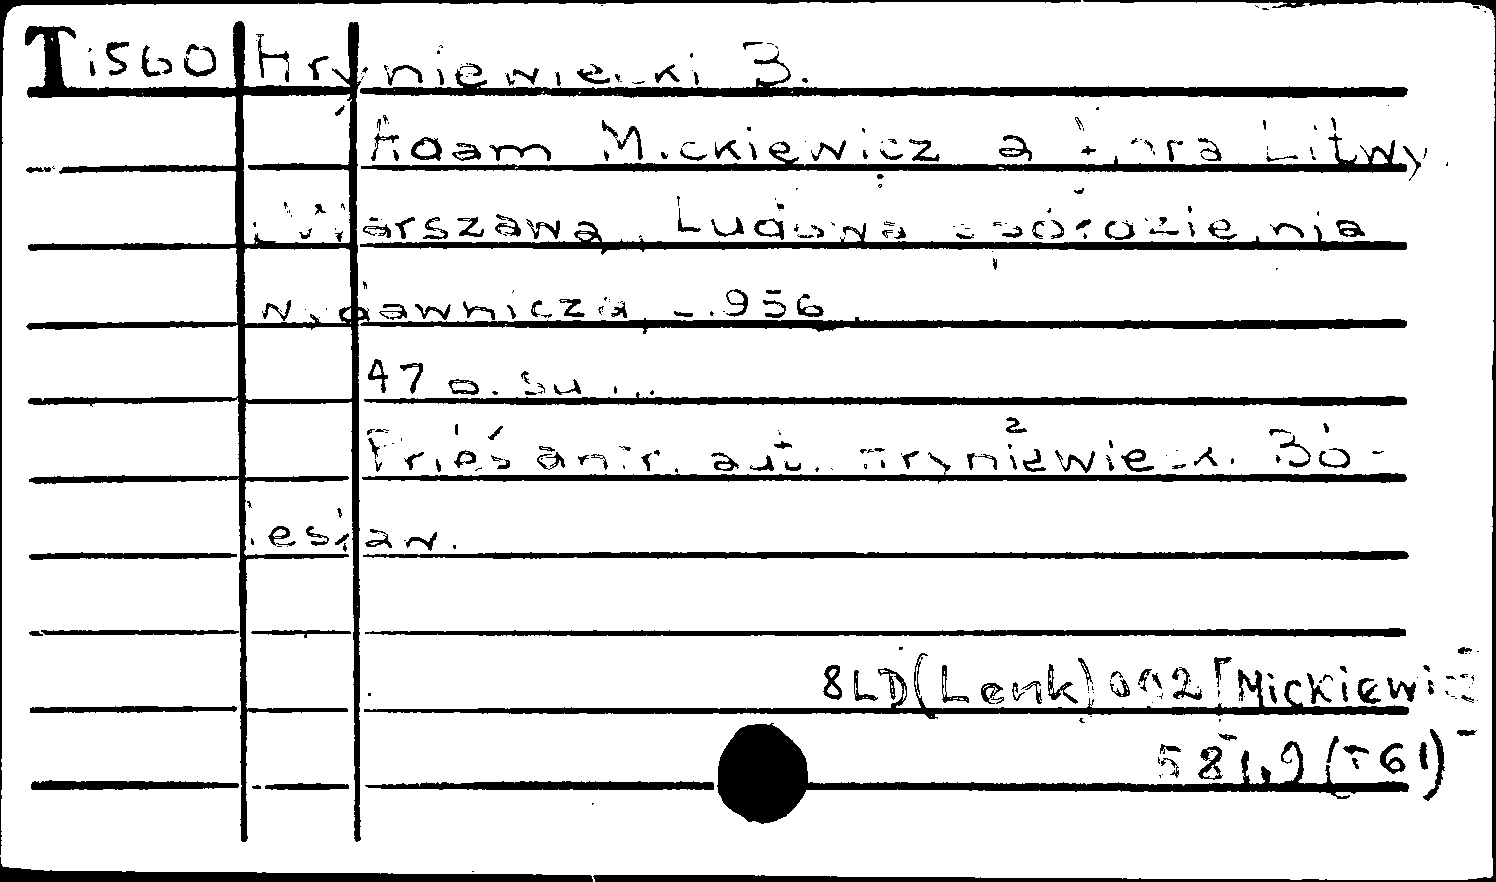 T i560 Hryniewiecki B.
Adam Mickiewicz a flora Litwy.
Warszawa, Ludowa spółdzielnia
wydawnicza, 1956.
47 s.
Prieš antr. aut. Hryniewiecki Bo-
lesław.
8LD(Lenk)092[Mickiewicz
581.9(